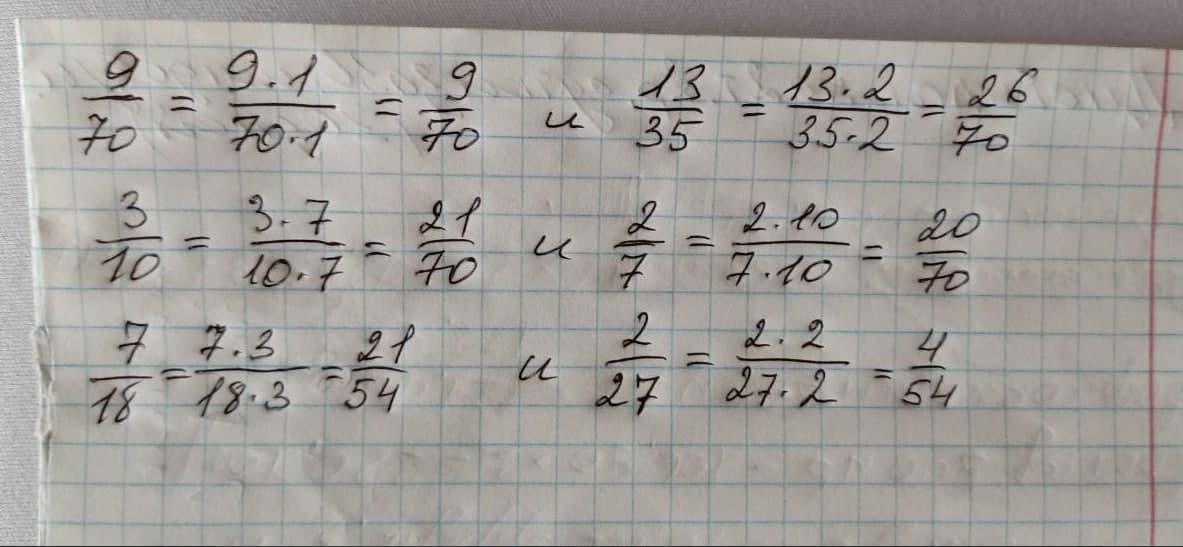 9/70 = 9·1/70·1 = 9/70 и 13/35 = 13·2/35·2 = 26/70
3/10 = 3·7/10·7 = 21/70 и 2/7 = 2·10/7·10 = 20/70
7/18 = 7·3/18·3 = 21/54 и 2/27 = 2·2/27·2 = 4/54